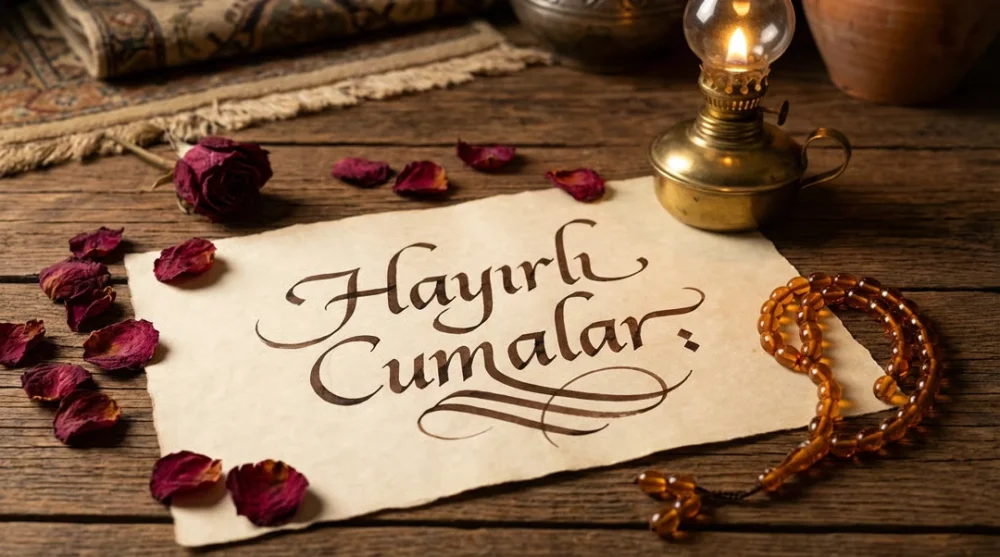 Hayırlı
Cumalar